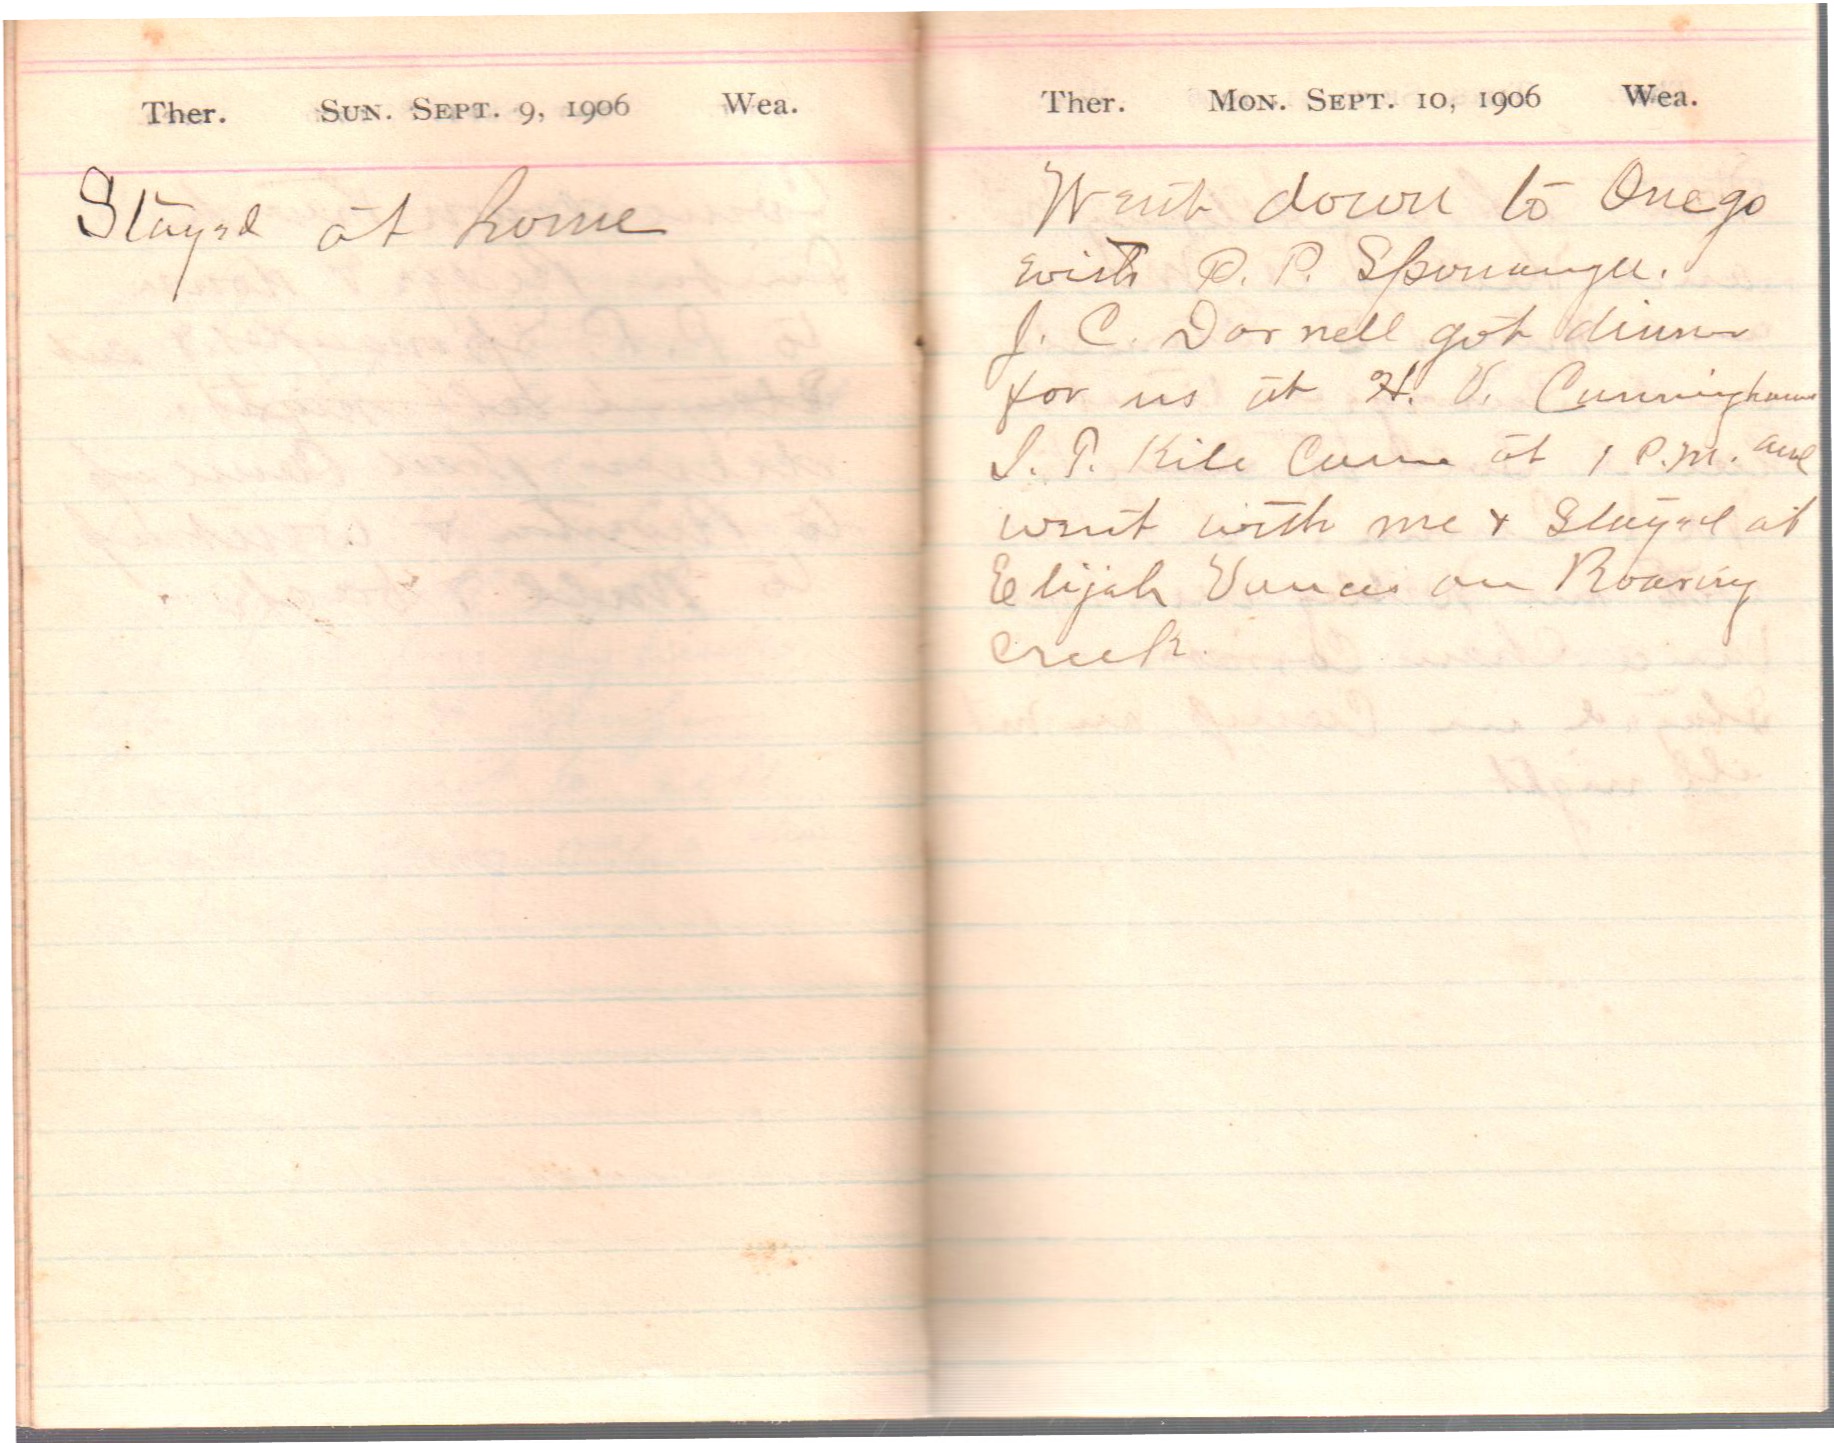 Ther. Sun. Sept. 9, 1906 Wea.
Stayed at home
Ther. Mon. Sept. 10, 1906 Wea.
Went down to Onego
with P. P. Sponaugle.
J. C. Darnell got dinner
for us at H. V. Cunninghams
I. P. Kile Came at 1 P.M. and
went with me & Stayed at
Elijah Vances on Roaring
creek.